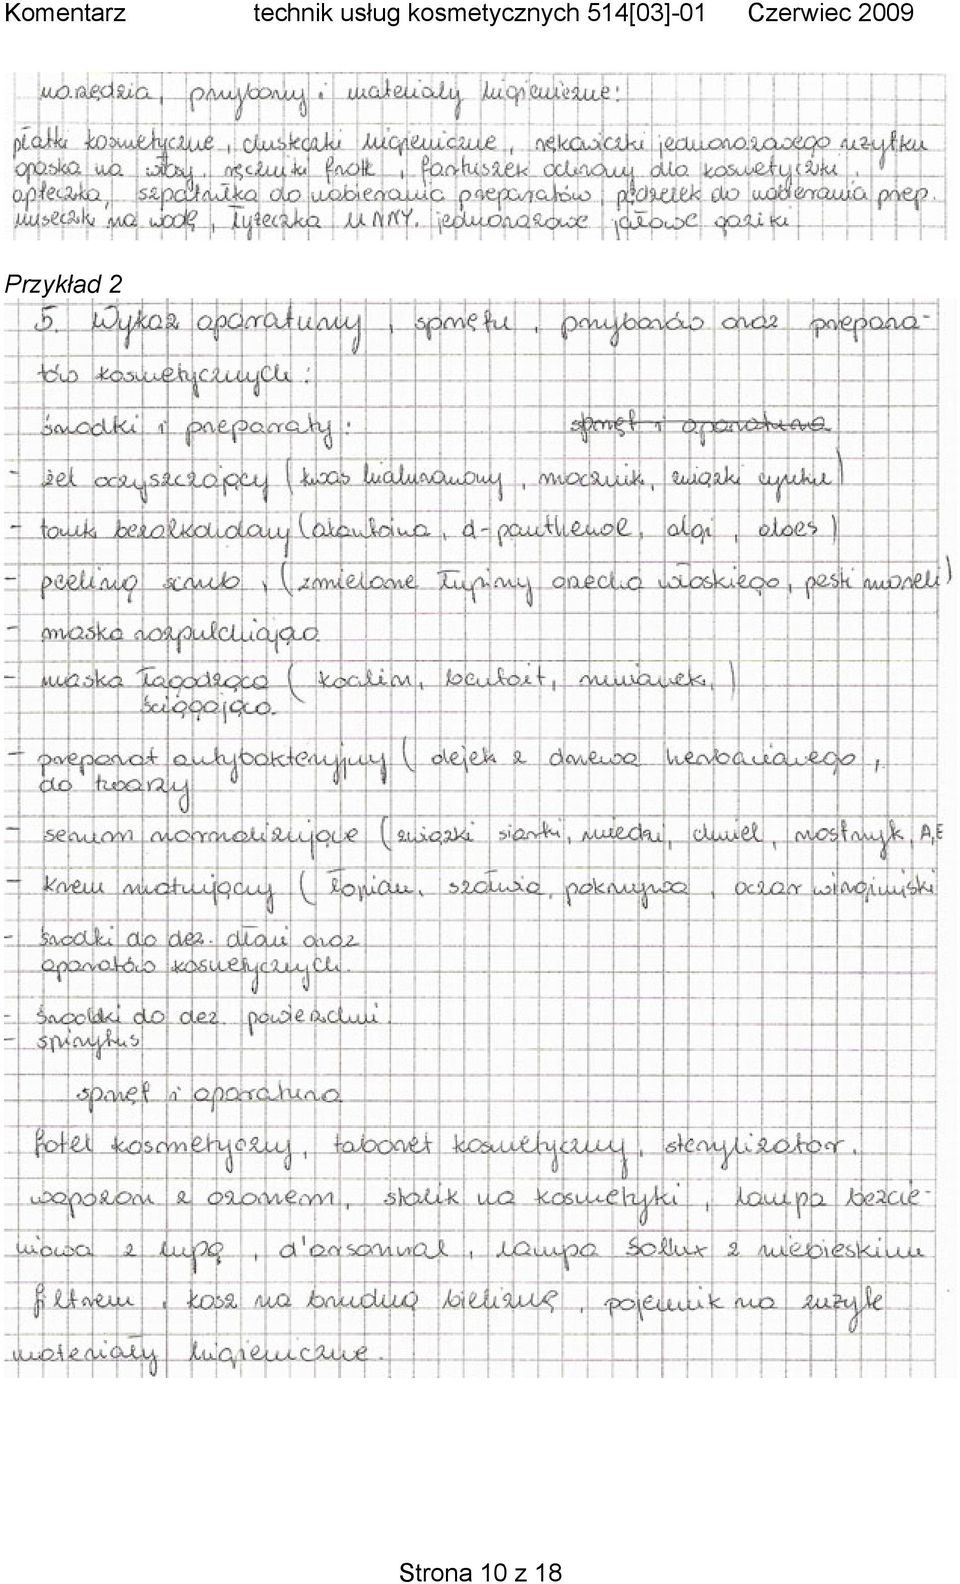 Komentarz technik usług kosmetycznych 514[03]-01 Czerwiec 2009
narzędzia, przybory i materiały higieniczne:
płatki kosmetyczne, chusteczki higieniczne, rękawiczki jednorazowego użytku
opaska na włosy, ręczniki frotte, fartuszek ochronny dla kosmetyczki,
apteczka, szpatułka do nabierania preparatów, pędzelek do nabierania prep.
miseczki na wodę, łyżeczka UNNY, jednorazowe jałowe gaziki
Przykład 2
5. Wykaz aparatury, sprzętu, przyborów oraz prepara-
tów kosmetycznych:
środki i preparaty: sprzęt i aparatura
- żel oczyszczający (kwas hialuronowy, mocznik, związki cynku)
- tonik bezalkoholowy (alantoina, d-panthenol, algi, aloes)
- peeling scrub, (zmielone łupiny orzecha włoskiego, pestki moreli)
- maska rozpulchniająca
- maska łagodząca (kaolin, bentonit, rumianek,)
ściągająco.
- preparat antybakteryjny (olejek z drzewa herbacianego,
do twarzy
- serum normalizujące (związki siarki, miedzi, chmiel, nostrzyk, A,E
- krem matujący (łopian, szałwia, pokrzywa, oczar wirginijski
- środki do dez. dłoni oraz
aparatów kosmetycznych.
- środki do dez. powierzchni.
- spirytus
sprzęt i aparatura
fotel kosmetyczny, taboret kosmetyczny, sterylizator,
wapozon z ozonem, stolik na kosmetyki, lampa bezcie-
niowa z lupą, d'arsonval, lampa Sollux z niebieskim
filtrem, kosz na brudną bieliznę, pojemnik na zużyte
materiały higieniczne.
Strona 10 z 18